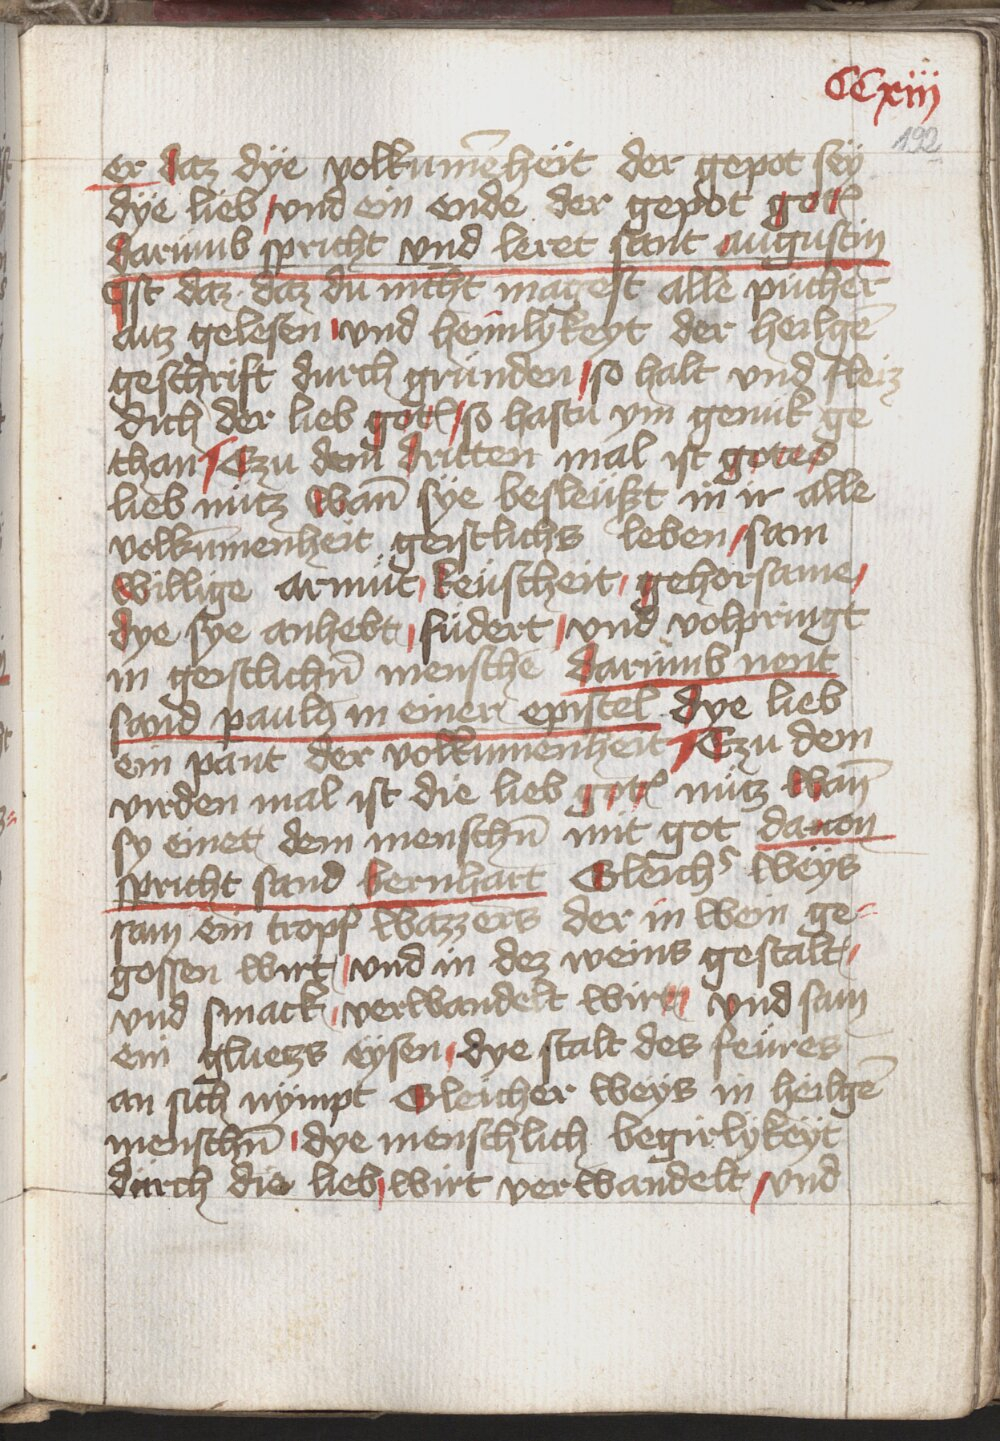 CCxiij
192
er datz dÿe volkumē̄heÿt der gepot seÿ
dÿe lieb / vnd ein ende der gepot gotꝭ
darumb spricht vnd leret sant augustin
Ist daz daz du nicht magest alle pucher
autz gelesen / vnd heimlykeyt der heilgē
geschrift durch gründen / so halt vnd fleiz
dich der lieb gotꝭ / so hastu ym genuk ge
than Tzu dem dritten mal ist gotes
lieb nutz Wan̄ sÿe besleuszt in ir alle
volkumenheit geistlichs leben / sam
Willige armüt / keüscheit / gehorsame /
dye sÿe anhebt / füdert / vnd volpringt
in geistlichn̄ mensche darumb nent
sand paulꝯ in einer epistel dye lieb
ein pant der volkumenheit Tzu dem
virden mal ist die lieb gotꝭ nutz Wan̄
sy einet dem menschn̄ mit got da von
spricht sand bernhart Gleichs Weÿs
sam ein tropf Wazzers der in Wein ge=
gossen Wirt / vnd in dez weins gestalt /
vnd smack / verWandelt Wirt / vnd sam
ein gluetzs eÿsen / dye stalt des feüres
an sich nÿmpt Gleicher Weÿs in heilgē
menschn̄ / dye menschlich begirlÿkeÿt
durch die lieb / Wirt verWandelt / vnd